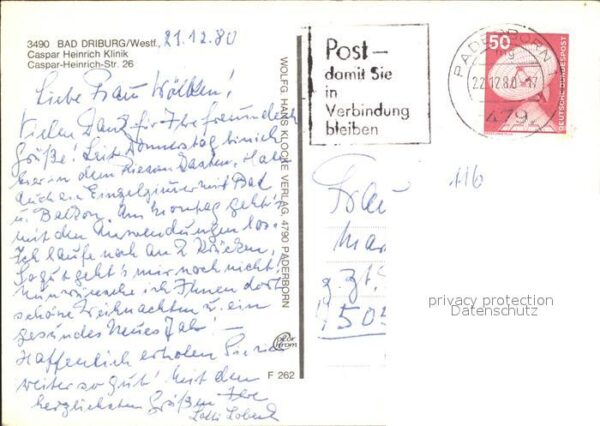 3490 BAD DRIBURG/Westf.
Caspar Heinrich Klinik
Caspar-Heinrich-Str. 26
21.12.80
Liebe Frau
Vielen Dank für Ihre freundlich
Grüße! Seit Donnerstag bin ich
hier in dem Riesen Kasten. Habe
auch ein Einzelzimmer mit Bad
u. Balkon. Am Montag geht's
mit den Anwendungen los.
Ich laufe noch an 2 Krücken,
so gut geht's mir noch nicht!
Nun wünsche ich Ihnen dort
schöne Weihnachten u. ein
gesundes Neues Jahr! —
Hoffentlich erholen Sie sich
weiter so gut! Mit den
herzlichsten Grüßen Ihre
Lotti
WOLFG. HANS KLOCKE VERLAG, 4790 PADERBORN
color
chrom
F 262
Post —
damit Sie
in
Verbindung
bleiben
PADERBORN 1
22.12.80.-17
479
50
DEUTSCHE BUNDESPOST
116
Frau
Mar
z. Zt.
505
privacy protection
Datenschutz